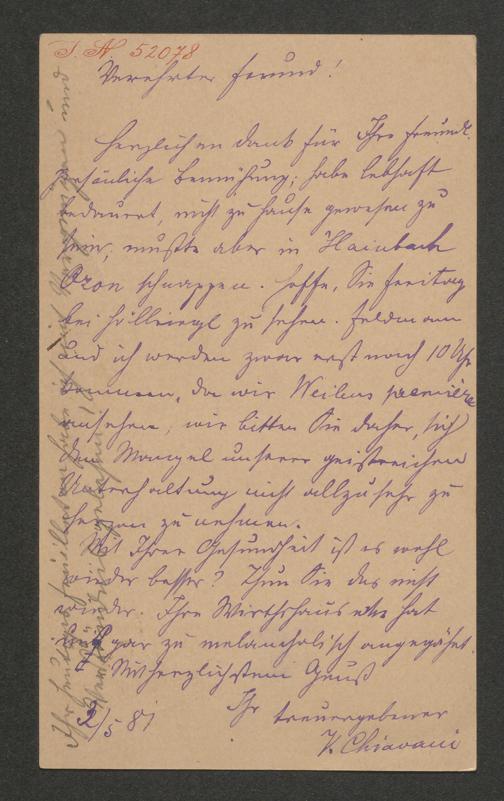 I. N 52078
Verehrter Freund!
Herzlichen Dank für Ihre freundl.
persönliche Bemühung; habe lebhaft
bedauert, nicht zu Hause gewesen zu
sein, mußte aber in Hainbach
Ozon schnappen. Hoffe, Sie Freitag
bei Höllriegl zu sehen. Feldmann
und ich werden zwar erst nach 10 Uhr
kommen, da wir Weilens première
ansehen, wir bitten Sie daher, sich
den Mangel unserer geistreichen
Unterhaltung nicht allzusehr zu
Herzen zu nehmen.
Mit Ihrer Gesundheit ist es wohl
wieder besser? Thun Sie das nicht
wieder. Ihre Wirthshaus hat
gar zu melancholisch angegähnt.
Mit herzlichstem Gruß
Ihr treuergebener
2/5 81
V. Chiavacci
Ihr heutiges Feuilleton habe ich mit Vergnügen und